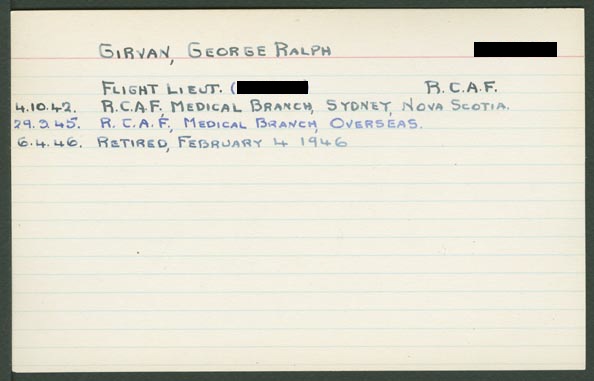 GIRVAN, GEORGE RALPH
FLIGHT LIEUT. ( ) R.C.A.F.
4.10.42. R.C.A.F. MEDICAL BRANCH, SYDNEY, NOVA SCOTIA.
29.3.45. R.C.A.F, MEDICAL BRANCH, OVERSEAS.
6.4.46. RETIRED, FEBRUARY 4 1946